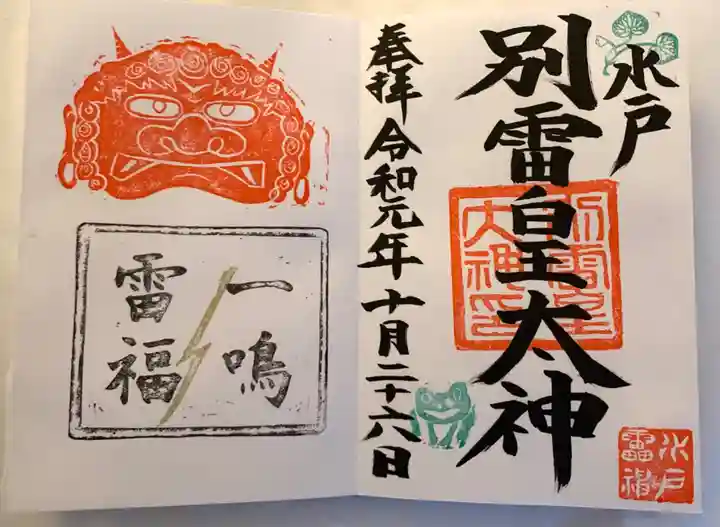 水戸
別雷皇太神
別雷皇
太神印
水戸
雷神
奉拝 令和元年十月二十六日
一鳴
雷福